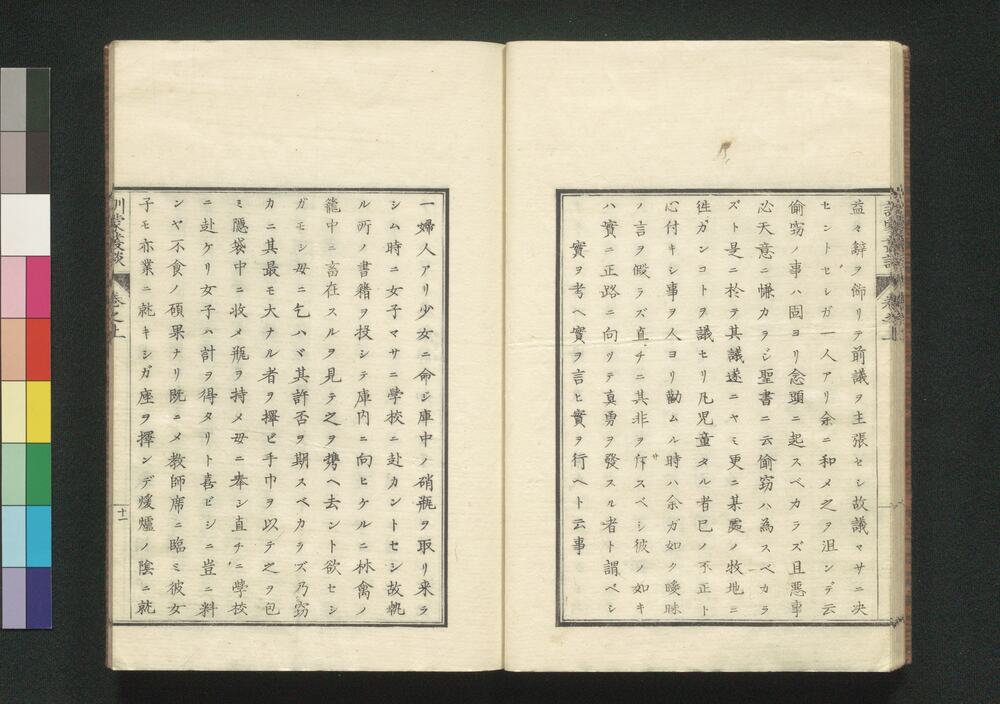 益々辭ヲ飾リテ前議ヲ主張セシ故議マサニ决
セントセシガ一人アリ余ニ和メ之ヲ沮ンデ云
偷窃ノ事ハ固ヨリ念頭ニ起スベカラズ且悪事
必天意ニ慊カラジ聖書ニ云偷窃ハ為スベカラ
ズト是ニ於テ其議遂ニヤミ更ニ某處ノ牧地ニ
徃ガンコトヲ議セリ凡児童タル者已ノ不正ト
心付キシ事ヲ人ヨリ勸ムル時ハ余ガ如ク曖昧
ノ言ヲ假ラズ直チニ其非ヲ斥スベシ彼ノ如キ
ハ實ニ正路ニ向ツテ真勇ヲ發スル者ト謂ベシ
實ヲ考ヘ實ヲ言ヒ實ヲ行ヘト云事
一婦人アリ少女ニ命ジ庫中ノ硝瓶ヲ取リ来ラ
シム時ニ女子マサニ學校ニ赴カントセシ故執
ル所ノ書籍ヲ投シテ庫内ニ向ヒケルニ林禽ノ
籠中ニ畜在スルヲ見テ之ヲ携ヘ去ント欲セシ
ガモシ母ニ乞ハバ其許否ヲ期スベカラズ乃窃
カニ其最モ大ナル者ヲ擇ビ手巾ヲ以テ之ヲ包
ミ隱袋中ニ收メ瓶ヲ持メ母ニ奉シ直チニ學校
ニ赴ケリ女子ハ計ヲ得タリト喜ビシニ豈ニ料
ンヤ不食ノ碩果ナリ既ニメ教師席ニ臨ミ彼女
子モ亦業ニ就キシガ座ヲ擇ンデ煖爐ノ陰ニ就
訓蒙叢談
巻之上
十一